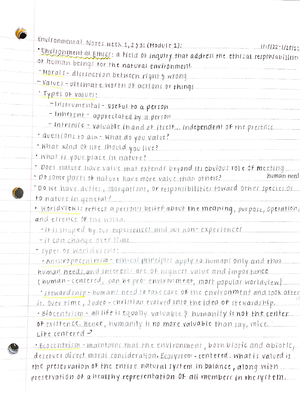 Environmental Notes week 1, 2 & 3: (Module 1):
* Environmental Ethics: a field of inquiry that address the ethical responsibilities
of human beings for the natural environment
- Morals - distinction between right & wrong
- Value - ultimate worth of actions or things
* Types of values:
- Instrumental - useful to a person
- Inherent - appreciated by a person
- Intrinsic - valuable in and of itself... independent of the presence
* questions to aim - What do you value?
* What kind of life should you live?
* What is your place in nature?
* Does nature have value that extend beyond its obvious role of meeting
human need
* Do some parts of nature have more value than others?
* Do we have duties, obligations, or responsibilities toward other species or
to nature in general?
* Worldviews: reflect a person's belief about the meaning, purpose, operation,
and essence of the world.
* It is shaped by our experiences and our non-experiences
- it can change over time
* Types of worldviews:
* Anthropocentric - ethical principles apply to humans only and that
human needs and interests are of highest value and importance
(human-centered, can be pro-environment, most popular worldview)
* Stewardship - humans need to take care of the environment and look after
it. Over time, Judeo-christian evolved into the idea of stewardship.
* Biocentrism - all life is equally valuable & humanity is not the center
of existence. hence, humanity is no more valuable than say, mice.
Life centered
* Ecocentrism - maintains that the environment, both biotic and abiotic,
deserves direct moral consideration. Ecosystem-centered. what is valued is
the preservation of the entire natural system in balance, along with
preservation of a healthy representation of all members in the system.